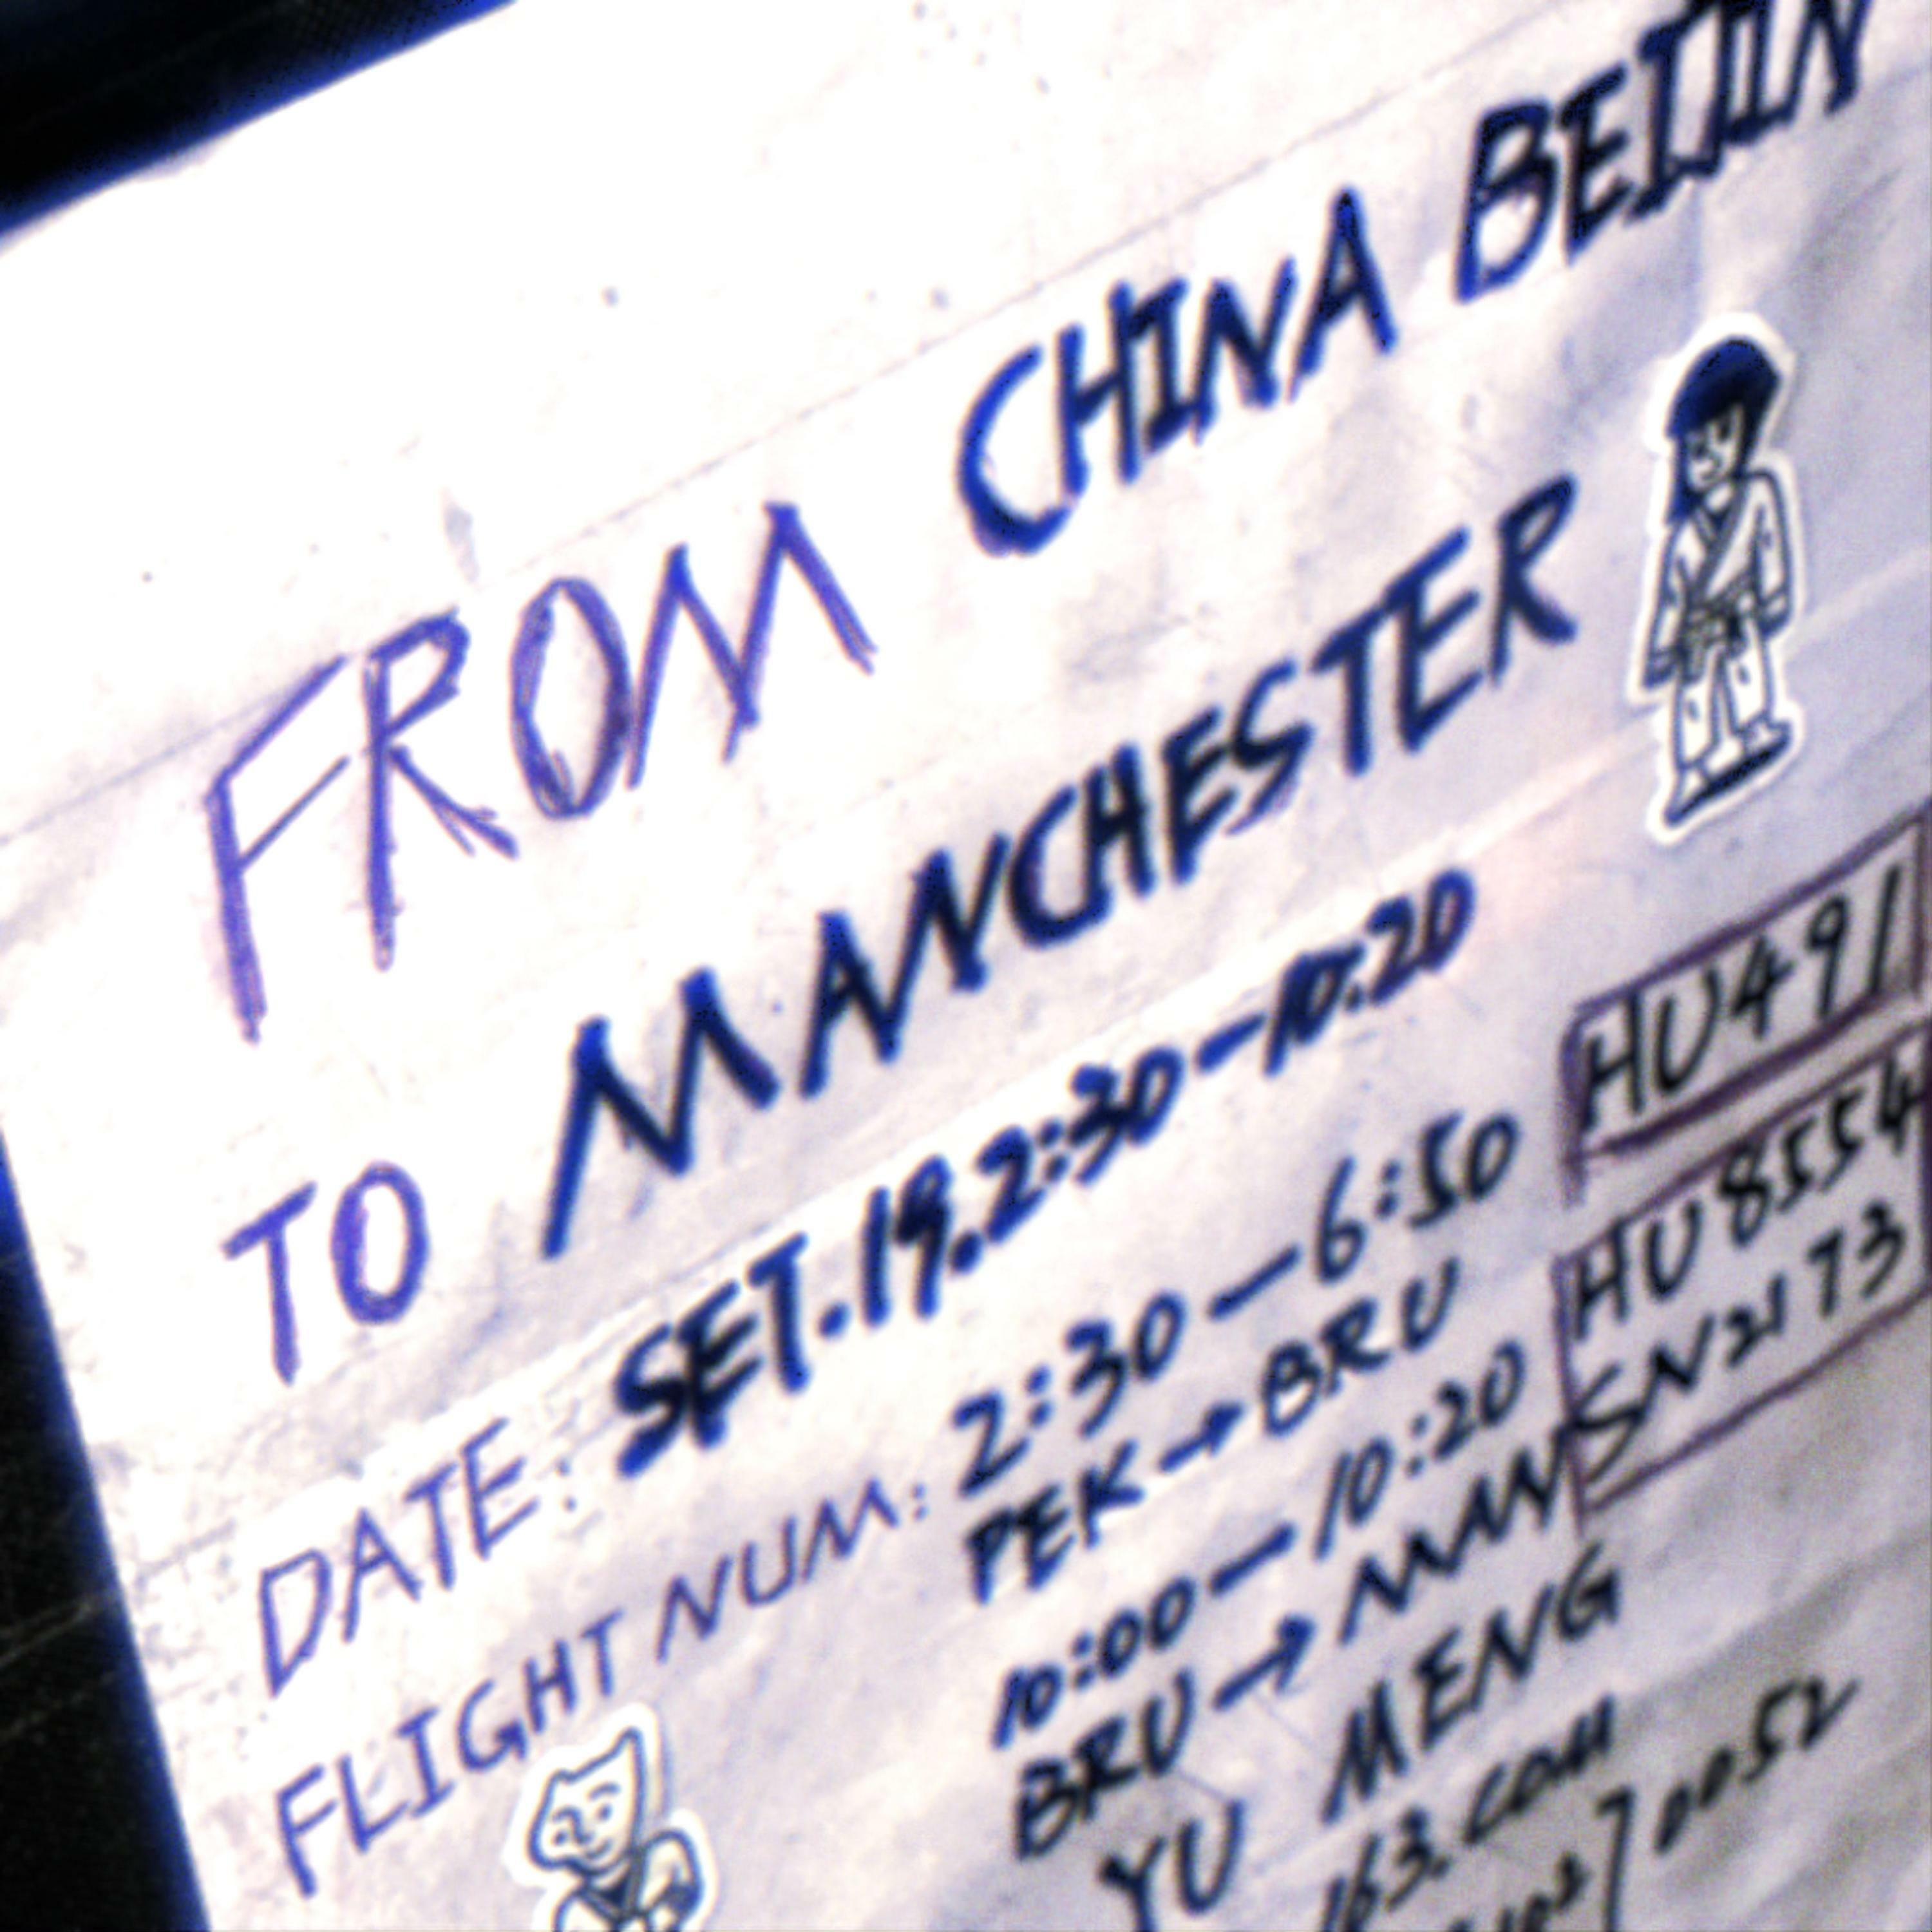 FROM CHINA BEIJIN
TO MANCHESTER
DATE: SET.19.2:30—10:20
FLIGHT NUM: 2:30—6:50 HU491
PEK→BRU
10:00—10:20 HU8554
BRU→MAN SN2173
YU MENG
163.COM
0052